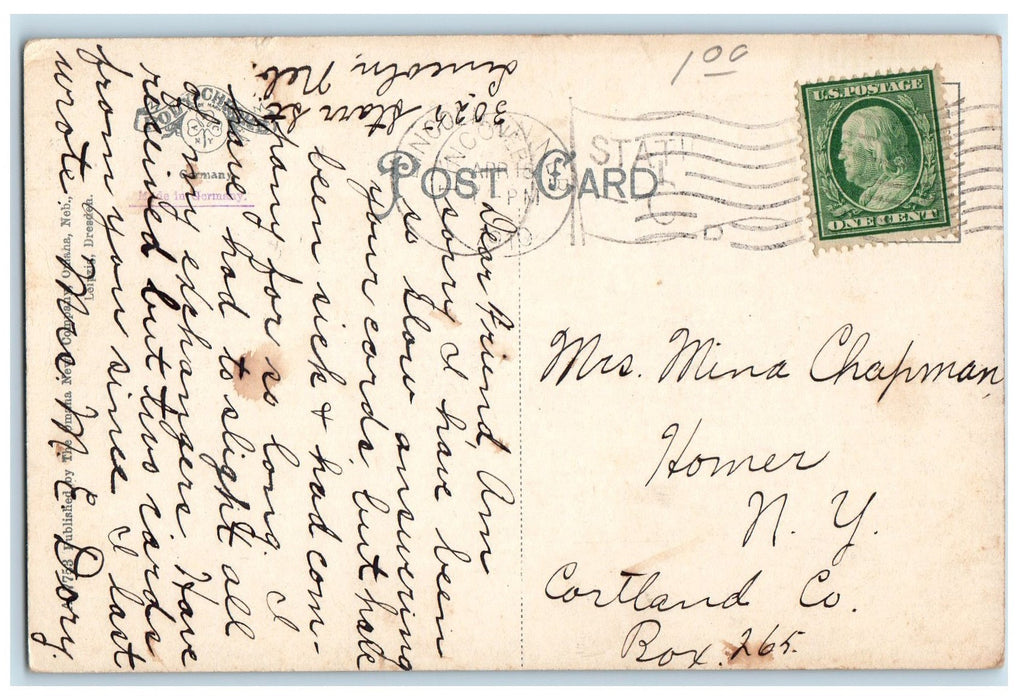 1 00
U.S. POSTAGE
ONE CENT
POST CARD
APR 18
PM
Germany
Made in Germany.
Published by The Omaha News Company, Omaha, Neb.,
Leipzig, Dresden.
Lincoln, Neb.
Starr St
Dear Friend, Am
sorry I have been
so slow answering
your cards, but have
been sick & had com-
pany for so long. I
have had to slight all
of my exchangers. Have
received but two cards
from you since I last
wrote.
Mrs. Mina Chapman,
Homer
N. Y.
Cortland Co.
Box. 265.